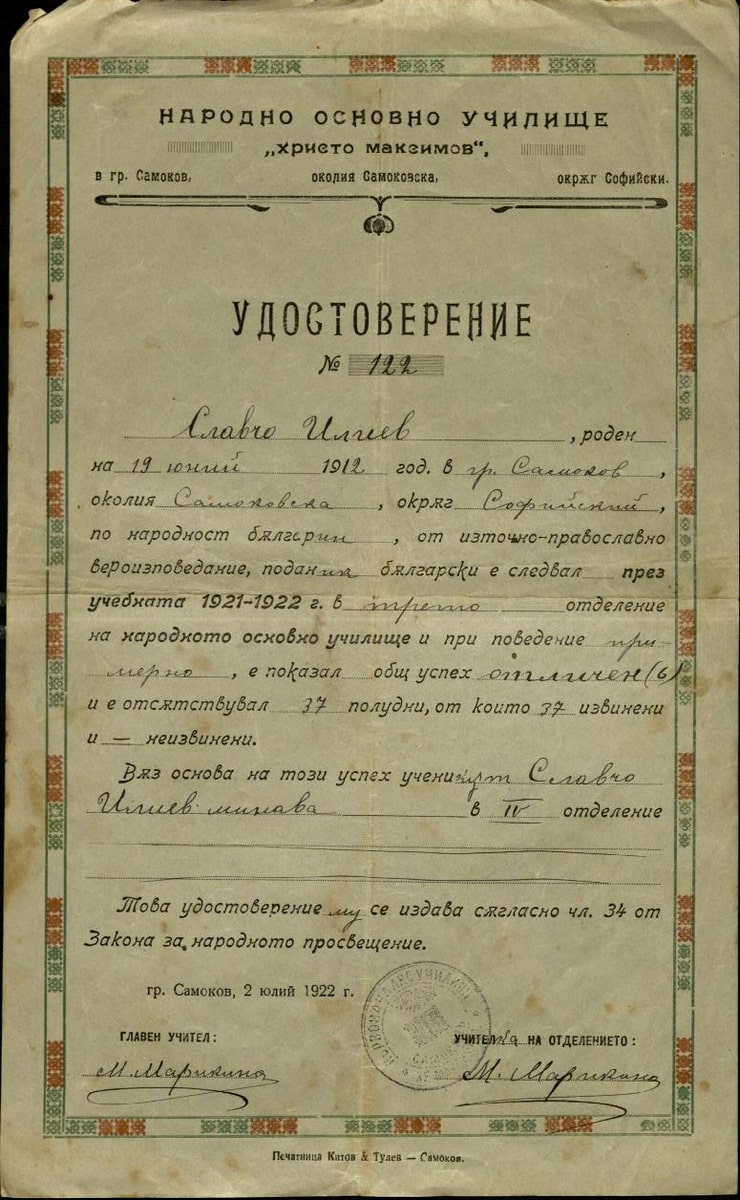 НАРОДНО ОСНОВНО УЧИЛИЩЕ
„ХРИСТО МАКСИМОВ“,
в гр. Самоков, околия Самоковска, окрѫг Софийски.
УДОСТОВЕРЕНИЕ
№ 122
Славчо Илиев, роден
на 19 юний 1912 год. в гр. Самоков,
околия Самоковска, окрѫг Софийский,
по народност бѫлгарин, от източно-православно
вероизповедание, поданик бѫлгарски е следвал през
учебната 1921-1922 г. в трето отделение
на народното основно училище и при поведение при-
мерно, е показал общ успех отличен (6)
и е отсѫтствувал 37 полудни, от които 37 извинени
и — неизвинени.
Вѫз основа на този успех ученикът Славчо
Илиев минава в IV отделение
Това удостоверение му се издава сѫгласно чл. 34 от
Закона за народното просвещение.
гр. Самоков, 2 юлий 1922 г.
ГЛАВЕН УЧИТЕЛ: УЧИТЕЛКА НА ОТДЕЛЕНИЕТО:
М. Марикина М. Марикина
Печатница Китов & Тулев — Самоков.